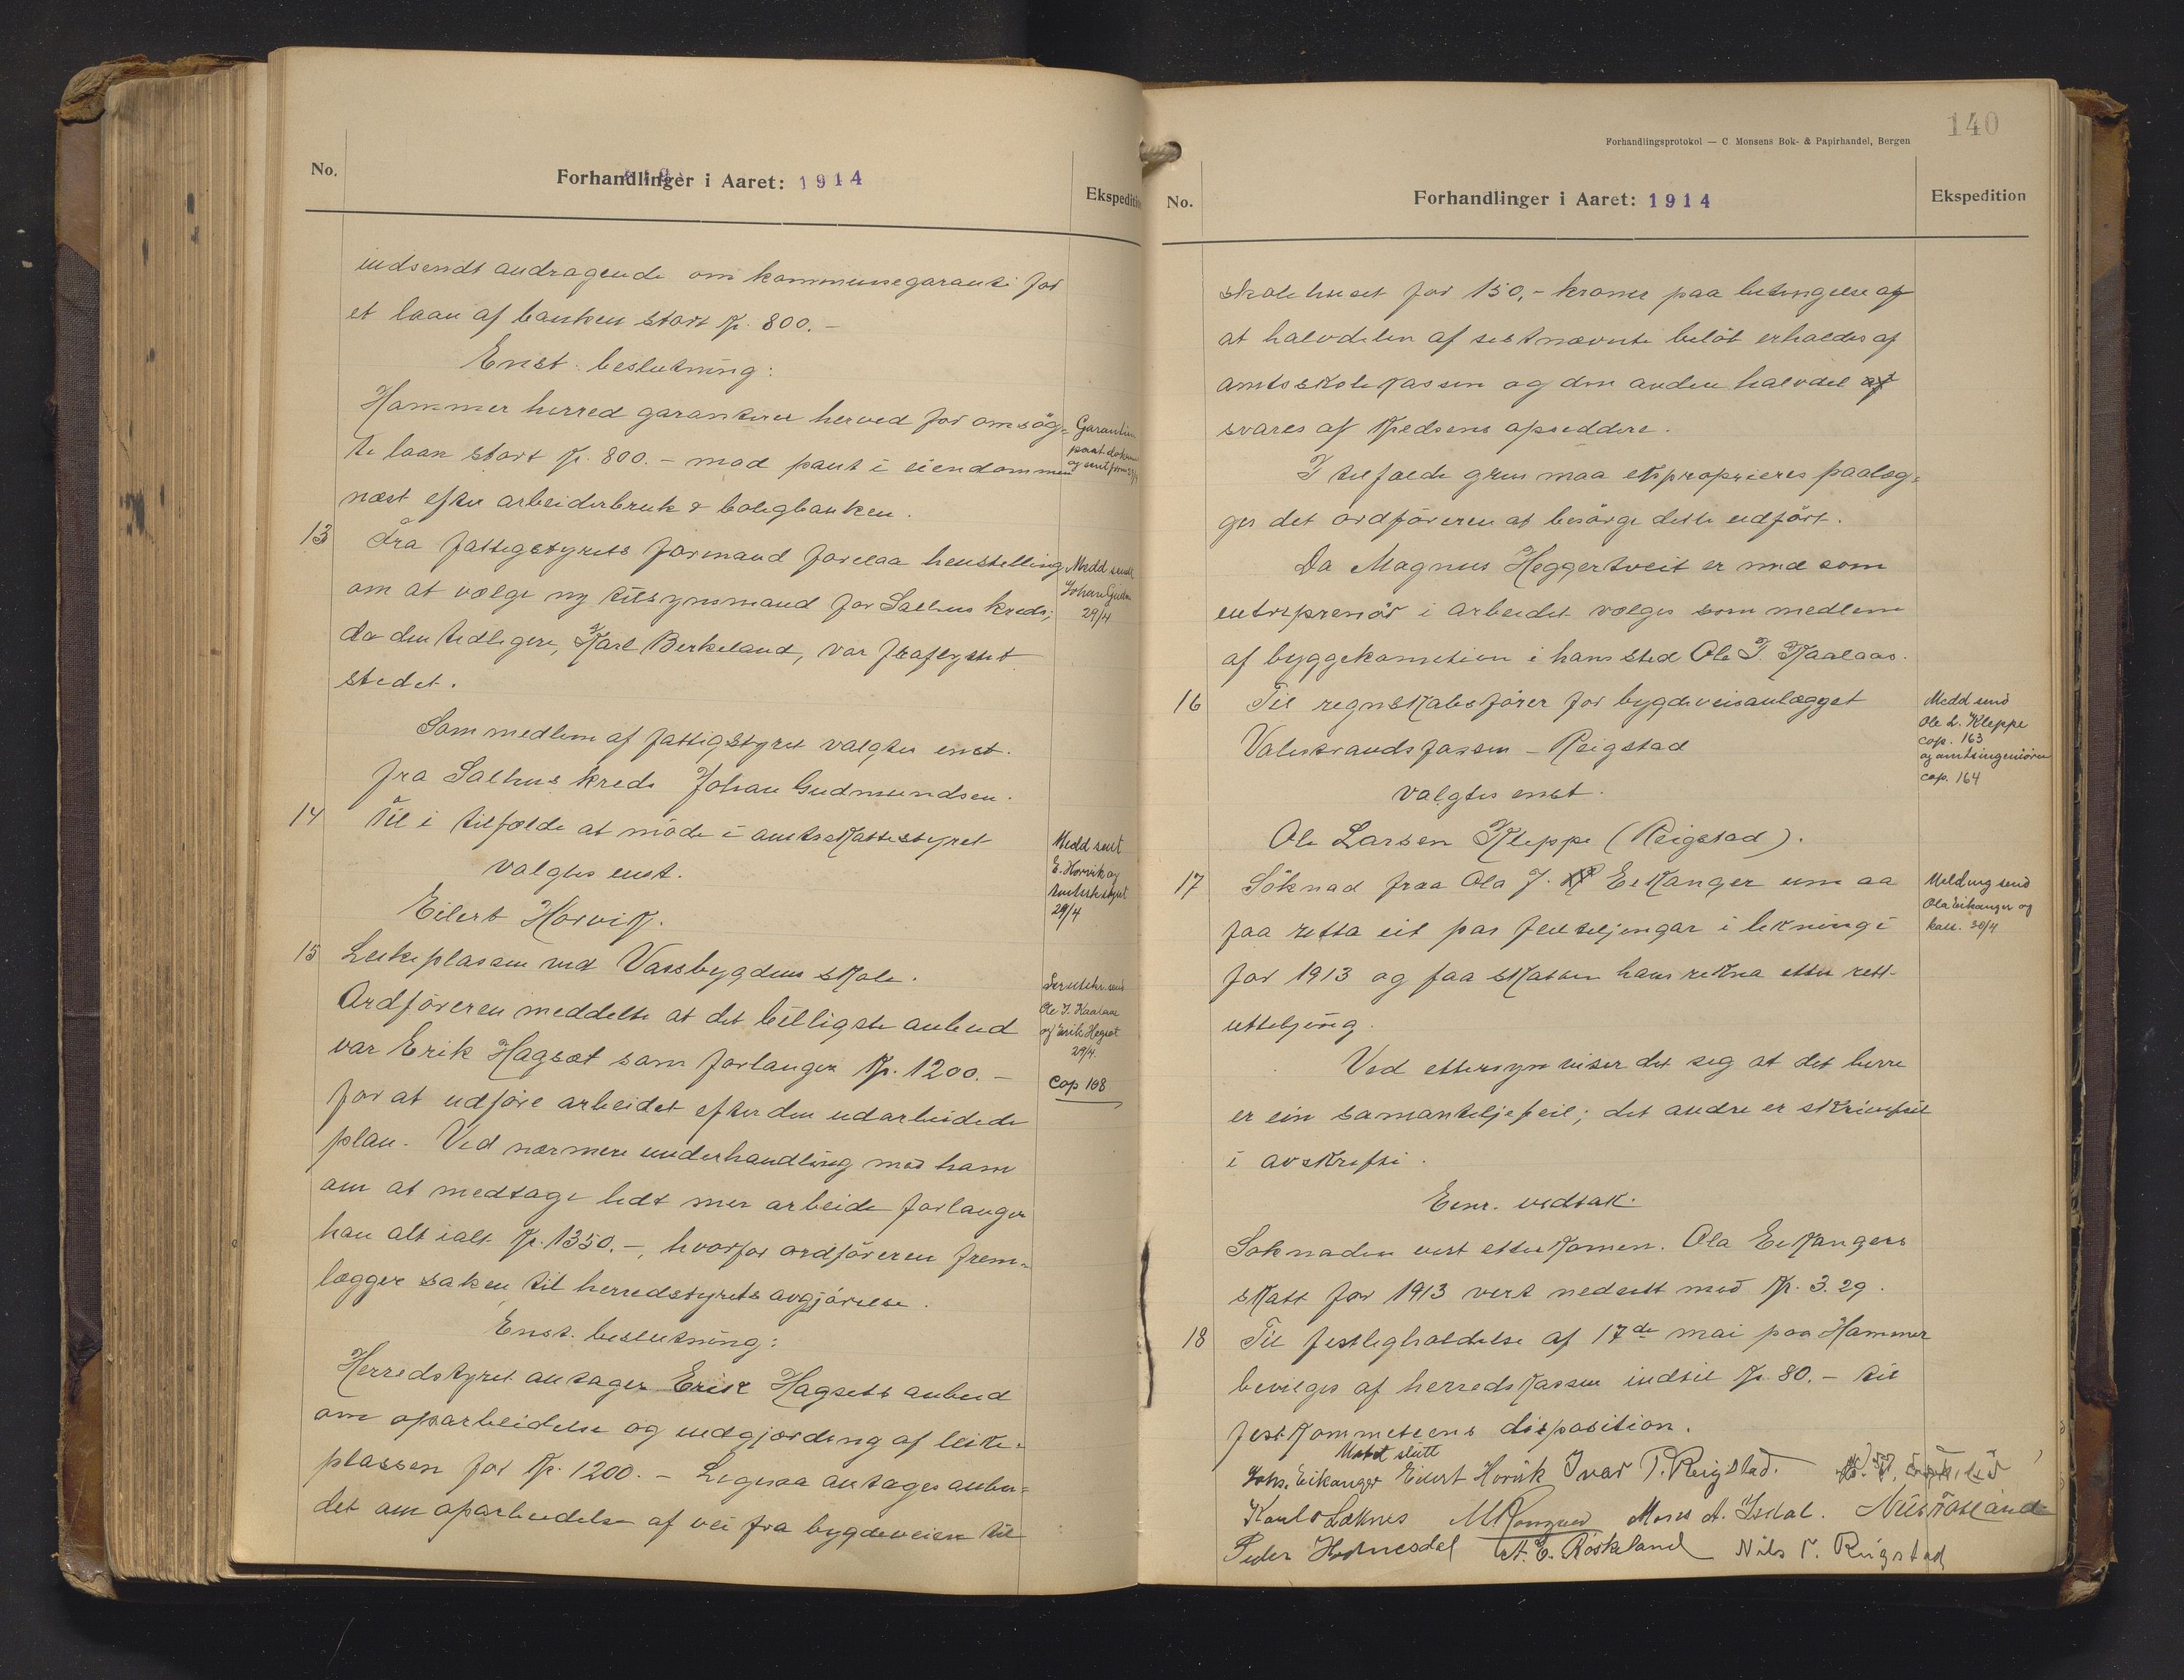 No.
Forhandlinger i Aaret: 1914
Ekspedition
indsendt andragende om kommunegaranti for
et laan af banken stort kr. 800.-
Enst. beslutning:
Hammer herred garanterer herved for omsög-
te laan stort kr. 800.- mod pant i eiendommen
næst efter arbeiderbruk & boligbanken.
Garantien
paat dokum
og sendt form
13 Fra fattigstyrets formand forelaa henstilling
om at vælge ny tilsynsmand for Salhus kreds,
da den tidligere, Karl Berkeland, var fraflyttet
stedet.
Medd sendt
Johan Gudm
29/4
Som medlem af fattigstyret valgtes enst.
fra Salhus kreds Johan Gudmundsen.
14 Til i tilfælde at møde i amtsskattestyret
valgtes enst.
Eilert Horvik.
Medd sent
E. Horvik og
29/4
15 Leikeplassen ved Vassbygdens skole.
Ordföreren meddelte at det billigste anbud
var Erik Hagsæt som forlanger kr. 1200.-
for at udføre arbeidet efter den udarbeidede
plan. Ved nærmere underhandling med ham
om at medtage lidt mer arbeide forlanger
han alt ialt kr. 1350.-, hvorfor ordföreren frem-
lægger saken til herredstyrets avgjörelse.
Særutskr. send
Ole J. Kaalaas
og Erik Hagsæt
29/4.
Cop 168
Enst. beslutning:
Herredstyret antager Erik Hagsets anbud
om oparbeidelse og indgjærding af leike-
plassen for kr. 1200.- Ligesaa antages anbu-
det om oparbeidelse af vei fra bygdeveien til
140
Forhandlingsprotokol — C. Monsens Bok- & Papirhandel, Bergen
No.
Forhandlinger i Aaret: 1914
Ekspedition
skolehuset for 150,- kroner paa betingelse af
at halvdelen af sistnævnte beløb erholdes af
amtsskolekassen og den anden halvdel af
svares af kredsens opsiddere.
I tilfælde grus maa ekspropieres paalæg-
ges det ordföreren at besørge dette udført.
Da Magnus Heggertveit er med som
entreprenør i arbeidet vælges som medlem
af byggekomiteen i hans sted Ole J. Kaalaas.
16 Til regnskabsfører for bygdeveisanlægget
Valestrandsfossen - Reigstad
valgtes enst.
Ole Larsen Kleppe (Reigstad).
Medd send
Ole L. Kleppe
cop. 163
og amtsingeniören
cop. 164
17 Söknad fraa Ola J. Eikanger um aa
faa retta eit par feilteljingar i likningi
for 1913 og faa skatten hans rekna etter rett-
utteljing.
Melding send
Ola Eikanger og
kass. 30/4
Ved ettersyn viser det seg at det berre
er ein samanteljefeil; det andre er skrivefeil
i avskrifti.
Einr. vedtak.
Søknaden vert etterkomen. Ola Eikangers
skatt for 1913 vert nedsett med kr. 3.29.
18 Til festligholdelse af 17de mai paa Hammer
bevilges af herredskassen indtil kr. 80.- til
festkomiteens disposition.
Møtet slutt
Johs. Eikanger Eilert Horvik Ivar T. Reigstad.
Karl O Løknes M Romgred Moses A. Isdal. Nils Tosland
Peder Holmesdal A. E. Röskeland Nils T. Reigstad